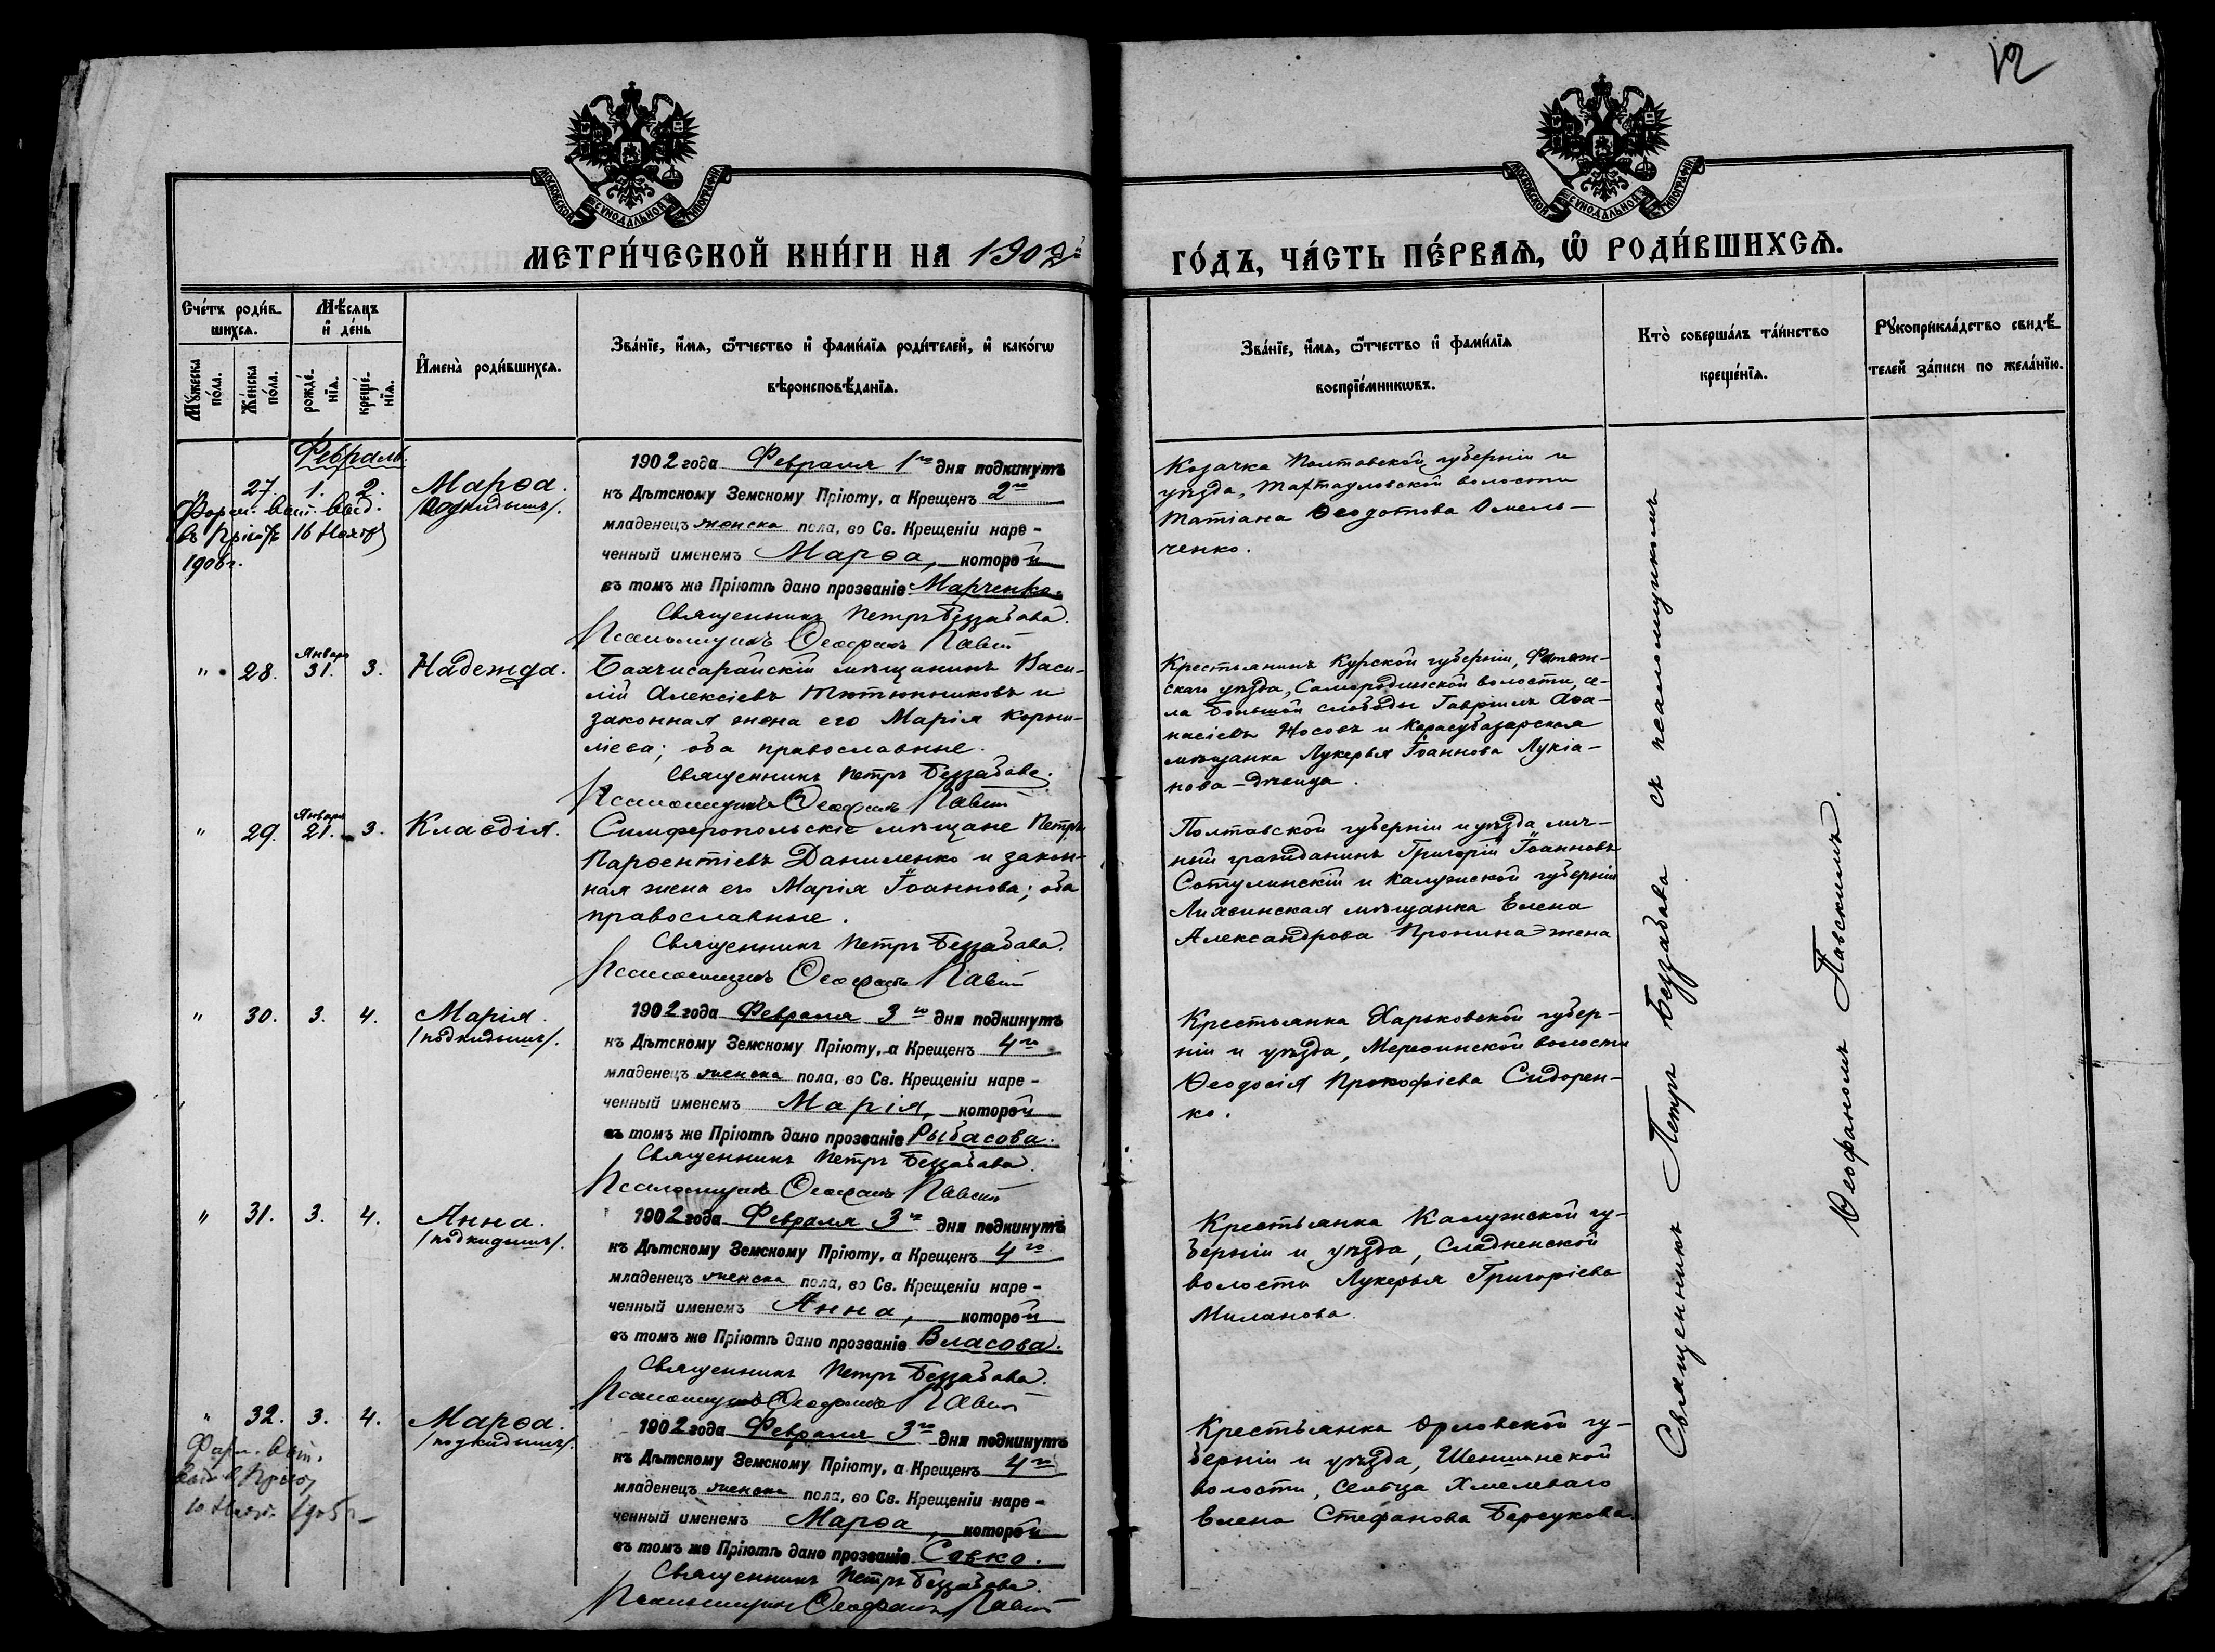 12
МОСКОВСКОЙ СѴНОДАЛЬНОЙ ТИПОГРАФІИ
МОСКОВСКОЙ СѴНОДАЛЬНОЙ ТИПОГРАФІИ
МЕТРИ́ЧЕСКОЙ КНИ́ГИ НА 1902й
ГО́ДЪ, ЧА́СТЬ ПЕ́РВАѦ, Ѽ РОДИ́ВШИХСѦ.
Сче́тъ роди́в-
шихсѧ.
Мѣ́сѧцъ
и҆ де́нь
Мꙋ́жеска
по́ла.
Же́нска
по́ла.
рожде́-
нїѧ.
креще́-
нїѧ.
И҆мена̀ роди́вшихсѧ.
Зва́нїе, и҆́мѧ, ѻ҆́тчество и҆ фами́лїѧ роди́телей, и҆ како́гѡ
вѣроисповѣ́данїѧ.
Зва́нїе, и҆́мѧ, ѻ҆́тчество и҆ фами́лїѧ
воспрїе́мникѡвъ.
Кто̀ соверша́лъ та́инство
креще́нїѧ.
Рꙋкоприкла́дство свидѣ́-
телей за́писи по жела́нїю.
Февраль.
" 27. 1. 2.
Марѳа.
/подкидышъ/.
въ Пріютъ 16 Ноября
1906 г.
1902 года Февраля 1го дня подкинутъ
къ Дѣтскому Земскому Пріюту, а Крещенъ 2го
младенецъ женска пола, во Св. Крещеніи наре-
ченный именемъ Марѳа, которой
въ томъ же Пріютѣ дано прозваніе Марченко.
Священникъ Петръ Беззабава.
Псаломщикъ Ѳеофанъ
Козачка Полтавской губерніи и
уѣзда, Тахтауловской волости
Татіана Ѳеодотова Омель-
ченко.
" 28. Января 31. 3. Надежда.
Бахчисарайскій мѣщанинъ Васи-
лій Алексіевъ Тютюнниковъ и
законная жена его Марія Корни-
ліева; оба православные.
Священникъ Петръ Беззабава.
Псаломщикъ Ѳеофанъ
Крестьянинъ Курской губерніи, Фатеж-
скаго уѣзда, Самородинской волости, се-
ла Большой слободы Гавріилъ Аѳа-
насіевъ Носовъ и Карасубазарская
мѣщанка Лукерья Іоаннова Лукіа-
нова-дѣвица.
" 29. Января 21. 3. Клавдія.
Симферопольскіе мѣщане Петръ
Парѳентіевъ Даниленко и закон-
ная жена его Марія Іоаннова; оба
православные.
Священникъ Петръ Беззабава.
Псаломщикъ Ѳеофанъ
Полтавской губерніи и уѣзда лич-
ный гражданинъ Григорій Іоанновъ
Сотулинскій и Калужской губерніи
Лихвинская мѣщанка Елена
Александрова Пронина жена
" 30. 3. 4. Марія.
/подкидышъ/.
1902 года Февраля 3го дня подкинутъ
къ Дѣтскому Земскому Пріюту, а Крещенъ 4го
младенецъ женска пола, во Св. Крещеніи наре-
ченный именемъ Марія, которой
въ томъ же Пріютѣ дано прозваніе Рыбасова.
Священникъ Петръ Беззабава.
Псаломщикъ Ѳеофанъ
Крестьянка Харьковской губер-
ніи и уѣзда, Мереѳинской волости
Ѳеодосія Прокофіева Сидорен-
ко.
" 31. 3. 4. Анна.
/подкидышъ/.
1902 года Февраля 3го дня подкинутъ
къ Дѣтскому Земскому Пріюту, а Крещенъ 4го
младенецъ женска пола, во Св. Крещеніи наре-
ченный именемъ Анна, которой
въ томъ же Пріютѣ дано прозваніе Власова.
Священникъ Петръ Беззабава.
Псаломщикъ Ѳеофанъ
Крестьянка Калужской гу-
берніи и уѣзда, Сладненской
волости Лукерья Григоріева
Миланова.
" 32. 3. 4. Марѳа.
/подкидышъ/.
1902 года Февраля 3го дня подкинутъ
къ Дѣтскому Земскому Пріюту, а Крещенъ 4го
младенецъ женска пола, во Св. Крещеніи наре-
ченный именемъ Марѳа, которой
въ томъ же Пріютѣ дано прозваніе Савко.
Священникъ Петръ Беззабава.
Псаломщикъ Ѳеофанъ
Крестьянка Орловской гу-
берніи и уѣзда, Шеншинской
волости, сельца Хмелеваго
Елена Стефанова Барсукова.
Священникъ Петръ Беззабава съ псаломщикомъ
Ѳеофаномъ Павскимъ.